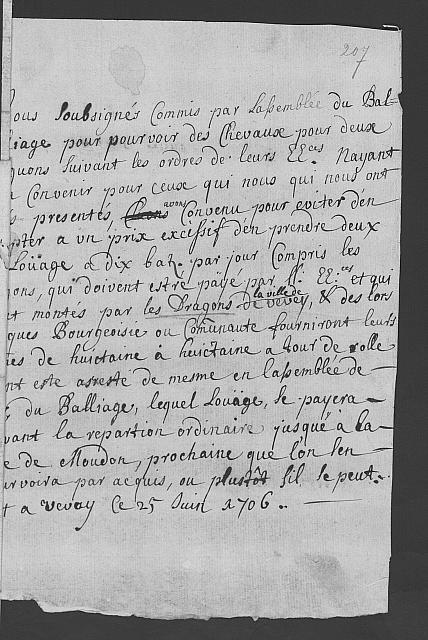 207
ous soubsignés Commis par Lassemblée du Bal=
liage pour pourvoir des Chevaux pour deux
quons suivant les ordres de leurs EE.ces Nayant
Convenir pour ceux qui nous qui nous ont
presentés, avons Convenu pour eviter den
pter a un prix excissif d'en prendre deux
Loüage a dix batz. par jour Compris les
ons, qui doivent estre payé par ll. EE.ces et qui
t montés par les Dragons la ville de
de vevey, & des lors
ques Bourgeoisie ou Comunauté fourniront leurs
es de huictaine à huictaine a tour de rolle
nt esté arresté de mesme en lassemblée de-
du Balliage, lequel Loüage, se payera-
vant la repartion ordinaire jusqué à la-
e de Moudon, prochaine que l'on sen-
urvoira par acquis, ou plustôt sil se peut.
t a vevay Ce 25 Juin 1706..